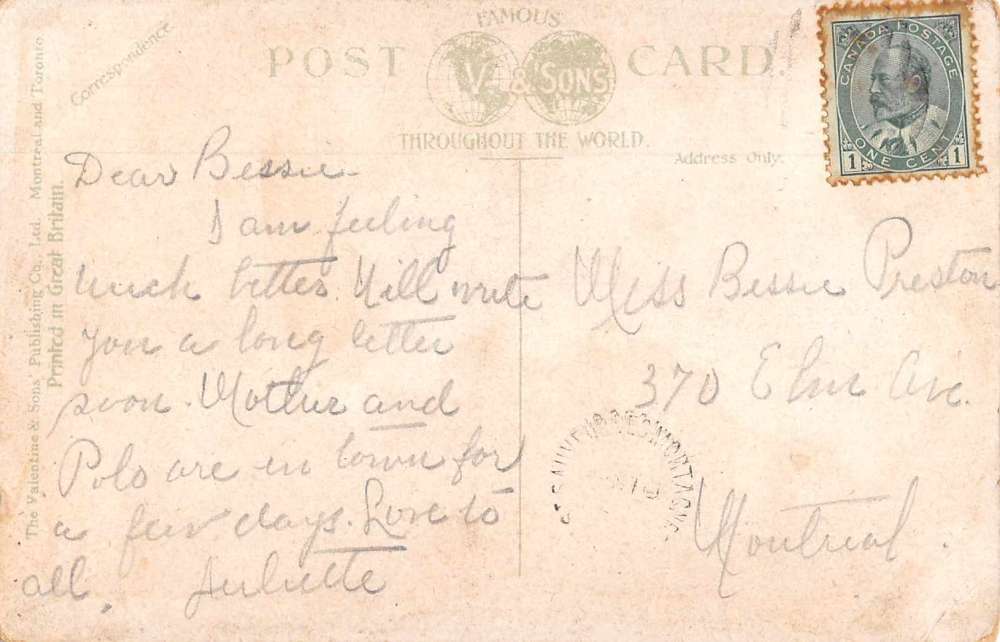 FAMOUS
POST CARD.
V. & SONS
THROUGHOUT THE WORLD.
Correspondence
Address Only.
The Valentine & Sons Publishing Co., Ltd. Montreal and Toronto
Printed in Great Britain.
CANADA POSTAGE
1 ONE CENT 1
Dear Bessie
I am feeling
much better. Will write
you a long letter
soon. Mother and
Polo are in town for
a few days. Love to
all. Juliette
Miss Bessie Preston
370 Elm Ave.
Montreal